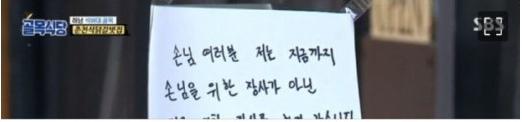 하남 석바대 골목
골목식당
춘천식닭갈빗집
SBS
손님 여러분 저는 지금까지
손님을 위한 장사가 아닌